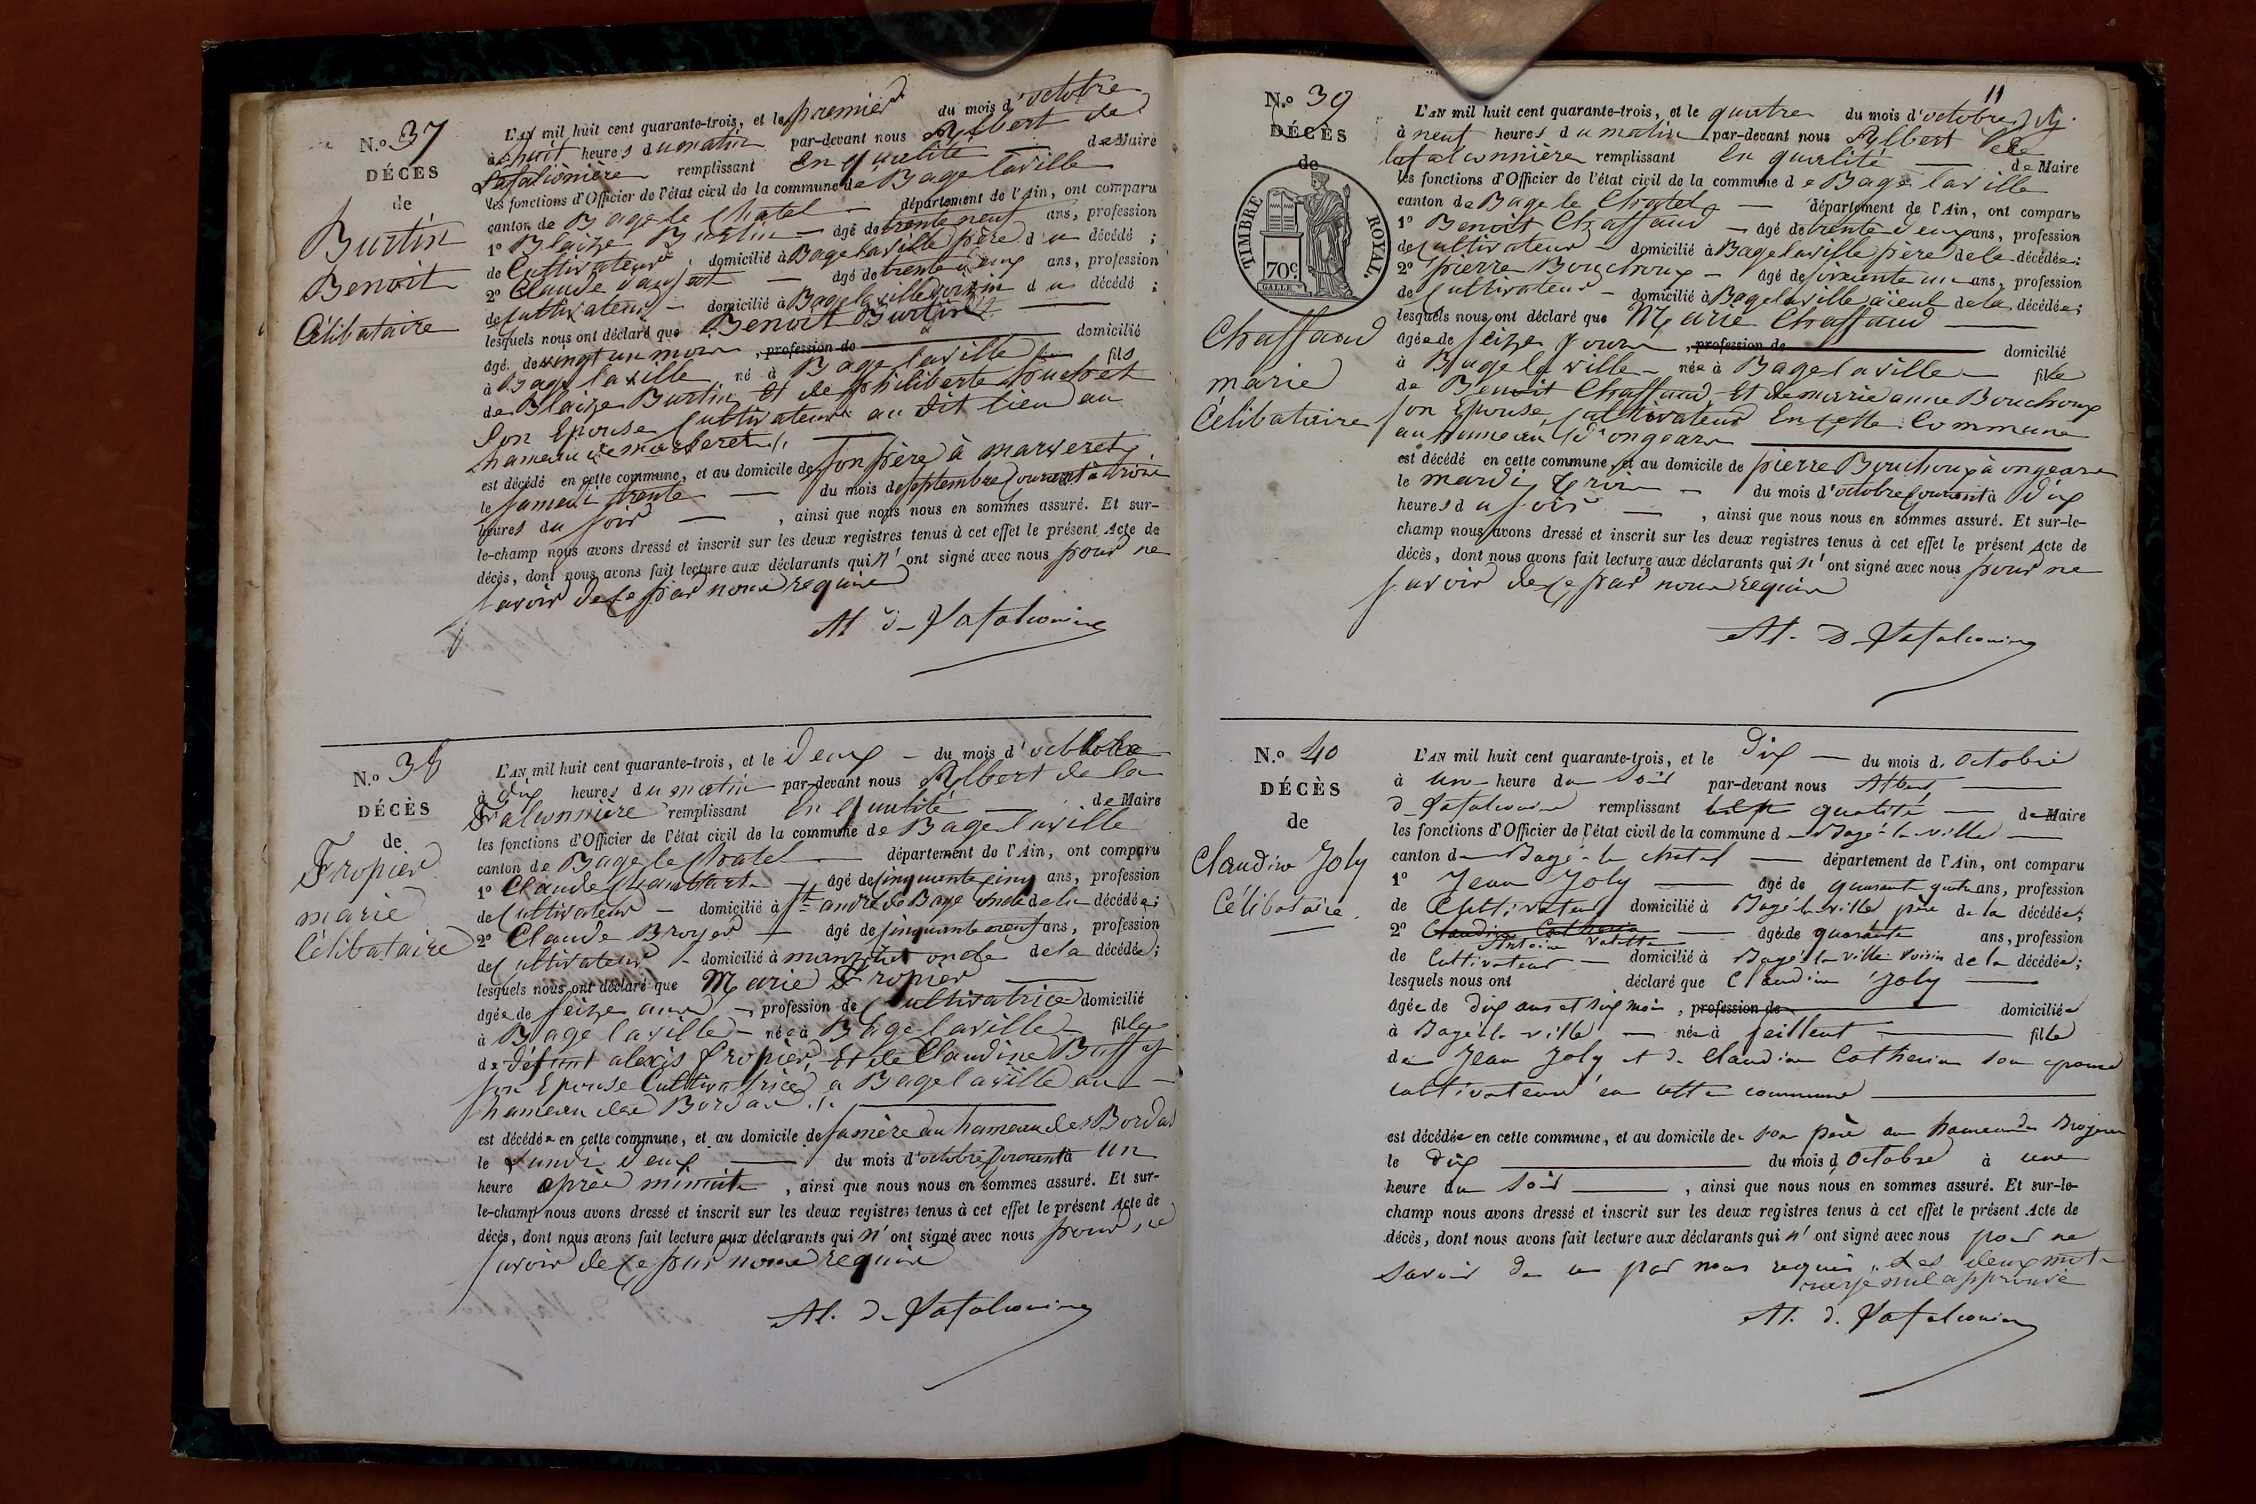 N.o 37
DÉCÈS
de
Burtin
Benoit
Célibataire
L'AN mil huit cent quarante-trois, et le premier du mois d'octobre
à huit heures du matin par-devant nous Albert de
Lafalconière remplissant en qualité de Maire
les fonctions d'Officier de l'état civil de la commune de Bagé laville
canton de Bagé le Chatel — département de l'Ain, ont comparu
1o Blaize Burtin — âgé de trente neuf ans, profession
de Cultivateur, domicilié à Bagé laville père du décédé ;
2o Claude — âgé de trente deux ans, profession
de Cultivateur — domicilié à Bagé laville voisin du décédé ;
lesquels nous ont déclaré que Benoit Burtin —
âgé de vingt un mois, profession de — domicilié
à Bagé laville né à Bagé laville fils
de Blaize Burtin Et de philiberte
Son Epouse Cultivateurs au dit lieu au
hameau de marveret ./. —
est décédé en cette commune, et au domicile de Son père à marveret
le samedi trente — du mois de septembre à trois
heures du soir — , ainsi que nous nous en sommes assuré. Et sur-
le-champ nous avons dressé et inscrit sur les deux registres tenus à cet effet le présent Acte de
décès, dont nous avons fait lecture aux déclarants qui n'ont signé avec nous pour ne
savoir de ce par nous requis
Al. de Lafalconière
N.o 38
DÉCÈS
de
Fropier
marie
Célibataire
L'AN mil huit cent quarante-trois, et le deux — du mois d'octobre
à dix heures du matin par-devant nous Albert de la
Falconnière remplissant En qualité — de Maire
les fonctions d'Officier de l'état civil de la commune de Bagé laville
canton de Bagé le Chatel — département de l'Ain, ont comparu
1o Claude — âgé de cinquante cinq ans, profession
de Cultivateur — domicilié à St andré de Bagé oncle de la décédée ;
2o Claude Broyer — âgé de cinquante neuf ans, profession
de Cultivateur — domicilié à manziat oncle de la décédée ;
lesquels nous ont déclaré que Marie Fropier —
âgée de seize ans —, profession de Cultivatrice domicilié
à Bagé laville — née à Bagé laville — fille
de défunt alexis fropier, Et de Claudine Buffy
son Epouse Cultivatrice a Bagé laville au —
hameau des Bordas ./. —
est décédée en cette commune, et au domicile de sa mère au hameau des Bordas
le Lundi deux — du mois d'octobre courant à un
heure après minuit , ainsi que nous nous en sommes assuré. Et sur-
le-champ nous avons dressé et inscrit sur les deux registres tenus à cet effet le présent Acte de
décès, dont nous avons fait lecture aux déclarants qui n'ont signé avec nous pour ne
savoir de ce par nous requis
Al. de Lafalconière
11
N.o 39
DÉCÈS
de
TIMBRE ROYAL.
70c.
Chaffaud
marie
Célibataire
L'AN mil huit cent quarante-trois, et le quatre du mois d'octobre
à neuf heures du matin par-devant nous Albert De
lafalconnière remplissant En qualité — de Maire
les fonctions d'Officier de l'état civil de la commune de Bagé laville
canton de Bagé le Chatel — département de l'Ain, ont comparu
1o Benoit Chaffaud — âgé de trente deux ans, profession
de Cultivateur — domicilié à Bagé laville père de la décédée ;
2o pierre Bouchoux — âgé de soixante un ans, profession
de Cultivateur — domicilié à Bagé laville aïeul de la décédée ;
lesquels nous ont déclaré que Marie Chaffaud —
âgée de seize jours, profession de — domicilié
à Bagé la ville — née à Bagé laville — fille
de Benoit Chaffaud Et de marie anne Bouchoux
son Epouse Cultivateurs En Cette Commune
au hameau d'ongears —
est décédé en cette commune, et au domicile de pierre Bouchoux à ongears
le mardi trois — du mois d'octobre courant à dix
heures du soir — , ainsi que nous nous en sommes assuré. Et sur-le-
champ nous avons dressé et inscrit sur les deux registres tenus à cet effet le présent Acte de
décès, dont nous avons fait lecture aux déclarants qui n'ont signé avec nous pour ne
savoir de ce par nous requis
Al. De Lafalconière
N.o 40
DÉCÈS
de
Claudine Joly
Célibataire.
L'AN mil huit cent quarante-trois, et le Dix — du mois d. octobre
à une heure du soir par-devant nous Albert —
de Lafalconière remplissant en qualité — de Maire
les fonctions d'Officier de l'état civil de la commune de Bagé-la-ville —
canton de Bagé-le chatel — département de l'Ain, ont comparu
1o Jean Joly — âgé de quarante quatre ans, profession
de Cultivateur domicilié à Bagé la ville père de la décédée ;
2o Claudine Catherin — âgé de quarante ans, profession
Antoine
de Cultivateur — domicilié à Bagé la ville voisin de la décédée ;
lesquels nous ont déclaré que Claudine Joly —
âgée de dix ans et six mois, profession de — domiciliée
à Bagé la ville — née à feillent — fille
de Jean Joly et de Claudine Catherin son epouse
cultivateurs en cette commune —
est décédée en cette commune, et au domicile de son père au hameau des
le dix — du mois d octobre à une
heure du soir — , ainsi que nous nous en sommes assuré. Et sur-le-
champ nous avons dressé et inscrit sur les deux registres tenus à cet effet le présent Acte de
décès, dont nous avons fait lecture aux déclarants qui n'ont signé avec nous pour ne
savoir de ce par nous requis. Les deux mots
rayé nul approuvé
Al. d. Lafalconière